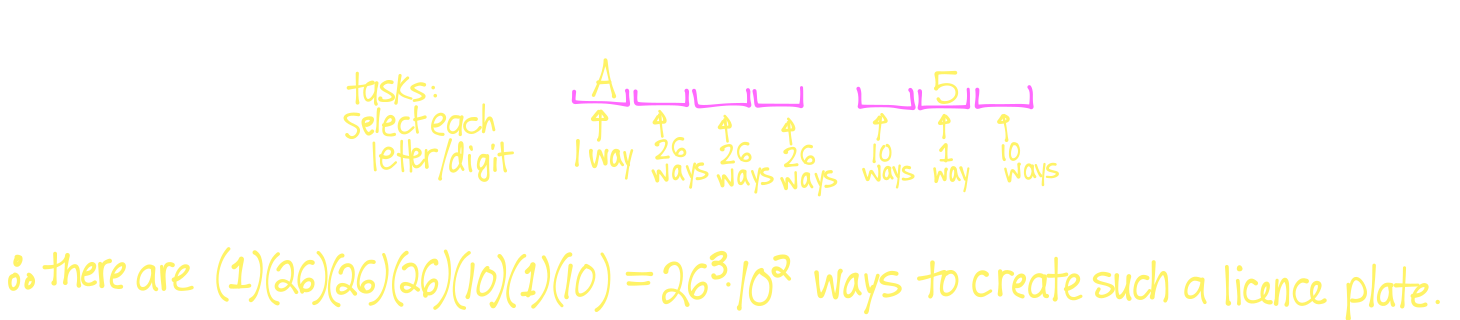 A 5
tasks:
select each
letter/digit
1 way 26 ways 26 ways 26 ways 10 ways 1 way 10 ways
∴ there are (1)(26)(26)(26)(10)(1)(10) = 26³·10² ways to create such a licence plate.